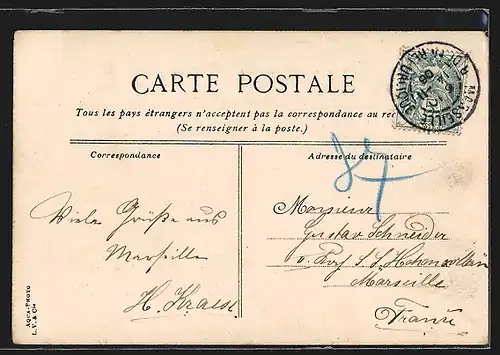 CARTE POSTALE
Tous les pays étrangers n'acceptent pas la correspondance au rec
(Se renseigner à la poste.)
MARSEILLE
R. DE LA REPUBLIQUE
08
Correspondance
Adresse du destinataire
87
Viele Grüße aus
Marseille
H. Krause
Monsieur
Gustav Schneider
S. S. Hohenzollern
Marseille
France
AQUA-PHOTO
L. V. & Cie